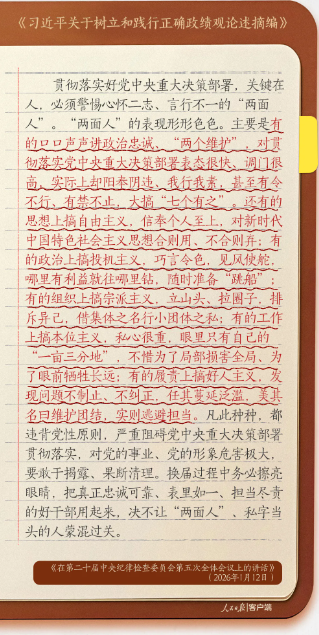 《习近平关于树立和践行正确政绩观论述摘编》
贯彻落实好党中央重大决策部署，关键在
人，必须警惕心怀二志、言行不一的“两面
人”。“两面人”的表现形形色色。主要是有
的口口声声讲政治忠诚、“两个维护”，对贯
彻落实党中央重大决策部署表态很快、调门很
高，实际上却阳奉阴违、我行我素，甚至有令
不行、有禁不止，大搞“七个有之”。还有的
思想上搞自由主义，信奉个人至上，对新时代
中国特色社会主义思想合则用、不合则弃；有
的政治上搞投机主义，巧言令色，见风使舵，
哪里有利益就往哪里钻，随时准备“跳船”；
有的组织上搞宗派主义，立山头、拉圈子，排
斥异己，借集体之名行小团体之私；有的工作
上搞本位主义，私心很重，眼里只有自己的
“一亩三分地”，不惜为了局部损害全局、为
了眼前牺牲长远；有的履责上搞好人主义，发
现问题不制止、不纠正，任其蔓延泛滥，美其
名曰维护团结，实则逃避担当。凡此种种，都
违背党性原则，严重阻碍党中央重大决策部署
贯彻落实，对党的事业、党的形象危害极大，
要敢于揭露、果断清理。换届过程中务必擦亮
眼睛，把真正忠诚可靠、表里如一、担当尽责
的好干部用起来，决不让“两面人”、私字当
头的人蒙混过关。
《在第二十届中央纪律检查委员会第五次全体会议上的讲话》
（2026年1月12日）
人民日报|客户端